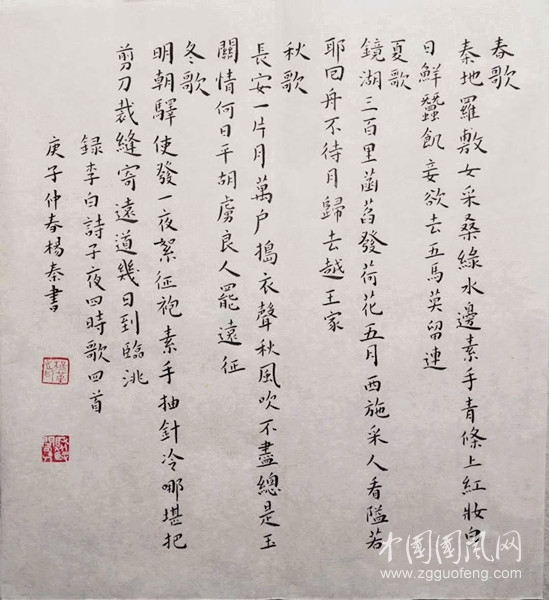 春歌
秦地羅敷女采桑綠水邊素手青條上紅妝白
日鮮蠶飢妾欲去五馬莫留連
夏歌
鏡湖三百里菡萏發荷花五月西施采人看隘若
耶回舟不待月歸去越王家
秋歌
長安一片月萬户搗衣聲秋風吹不盡總是玉
關情何日平胡虜良人罷遠征
冬歌
明朝驛使發一夜絮征袍素手抽針冷哪堪把
剪刀裁縫寄遠道幾日到臨洮
録李白詩子夜四時歌四首
庚子仲春楊秦書
中國國風网
www.zgguofeng.com